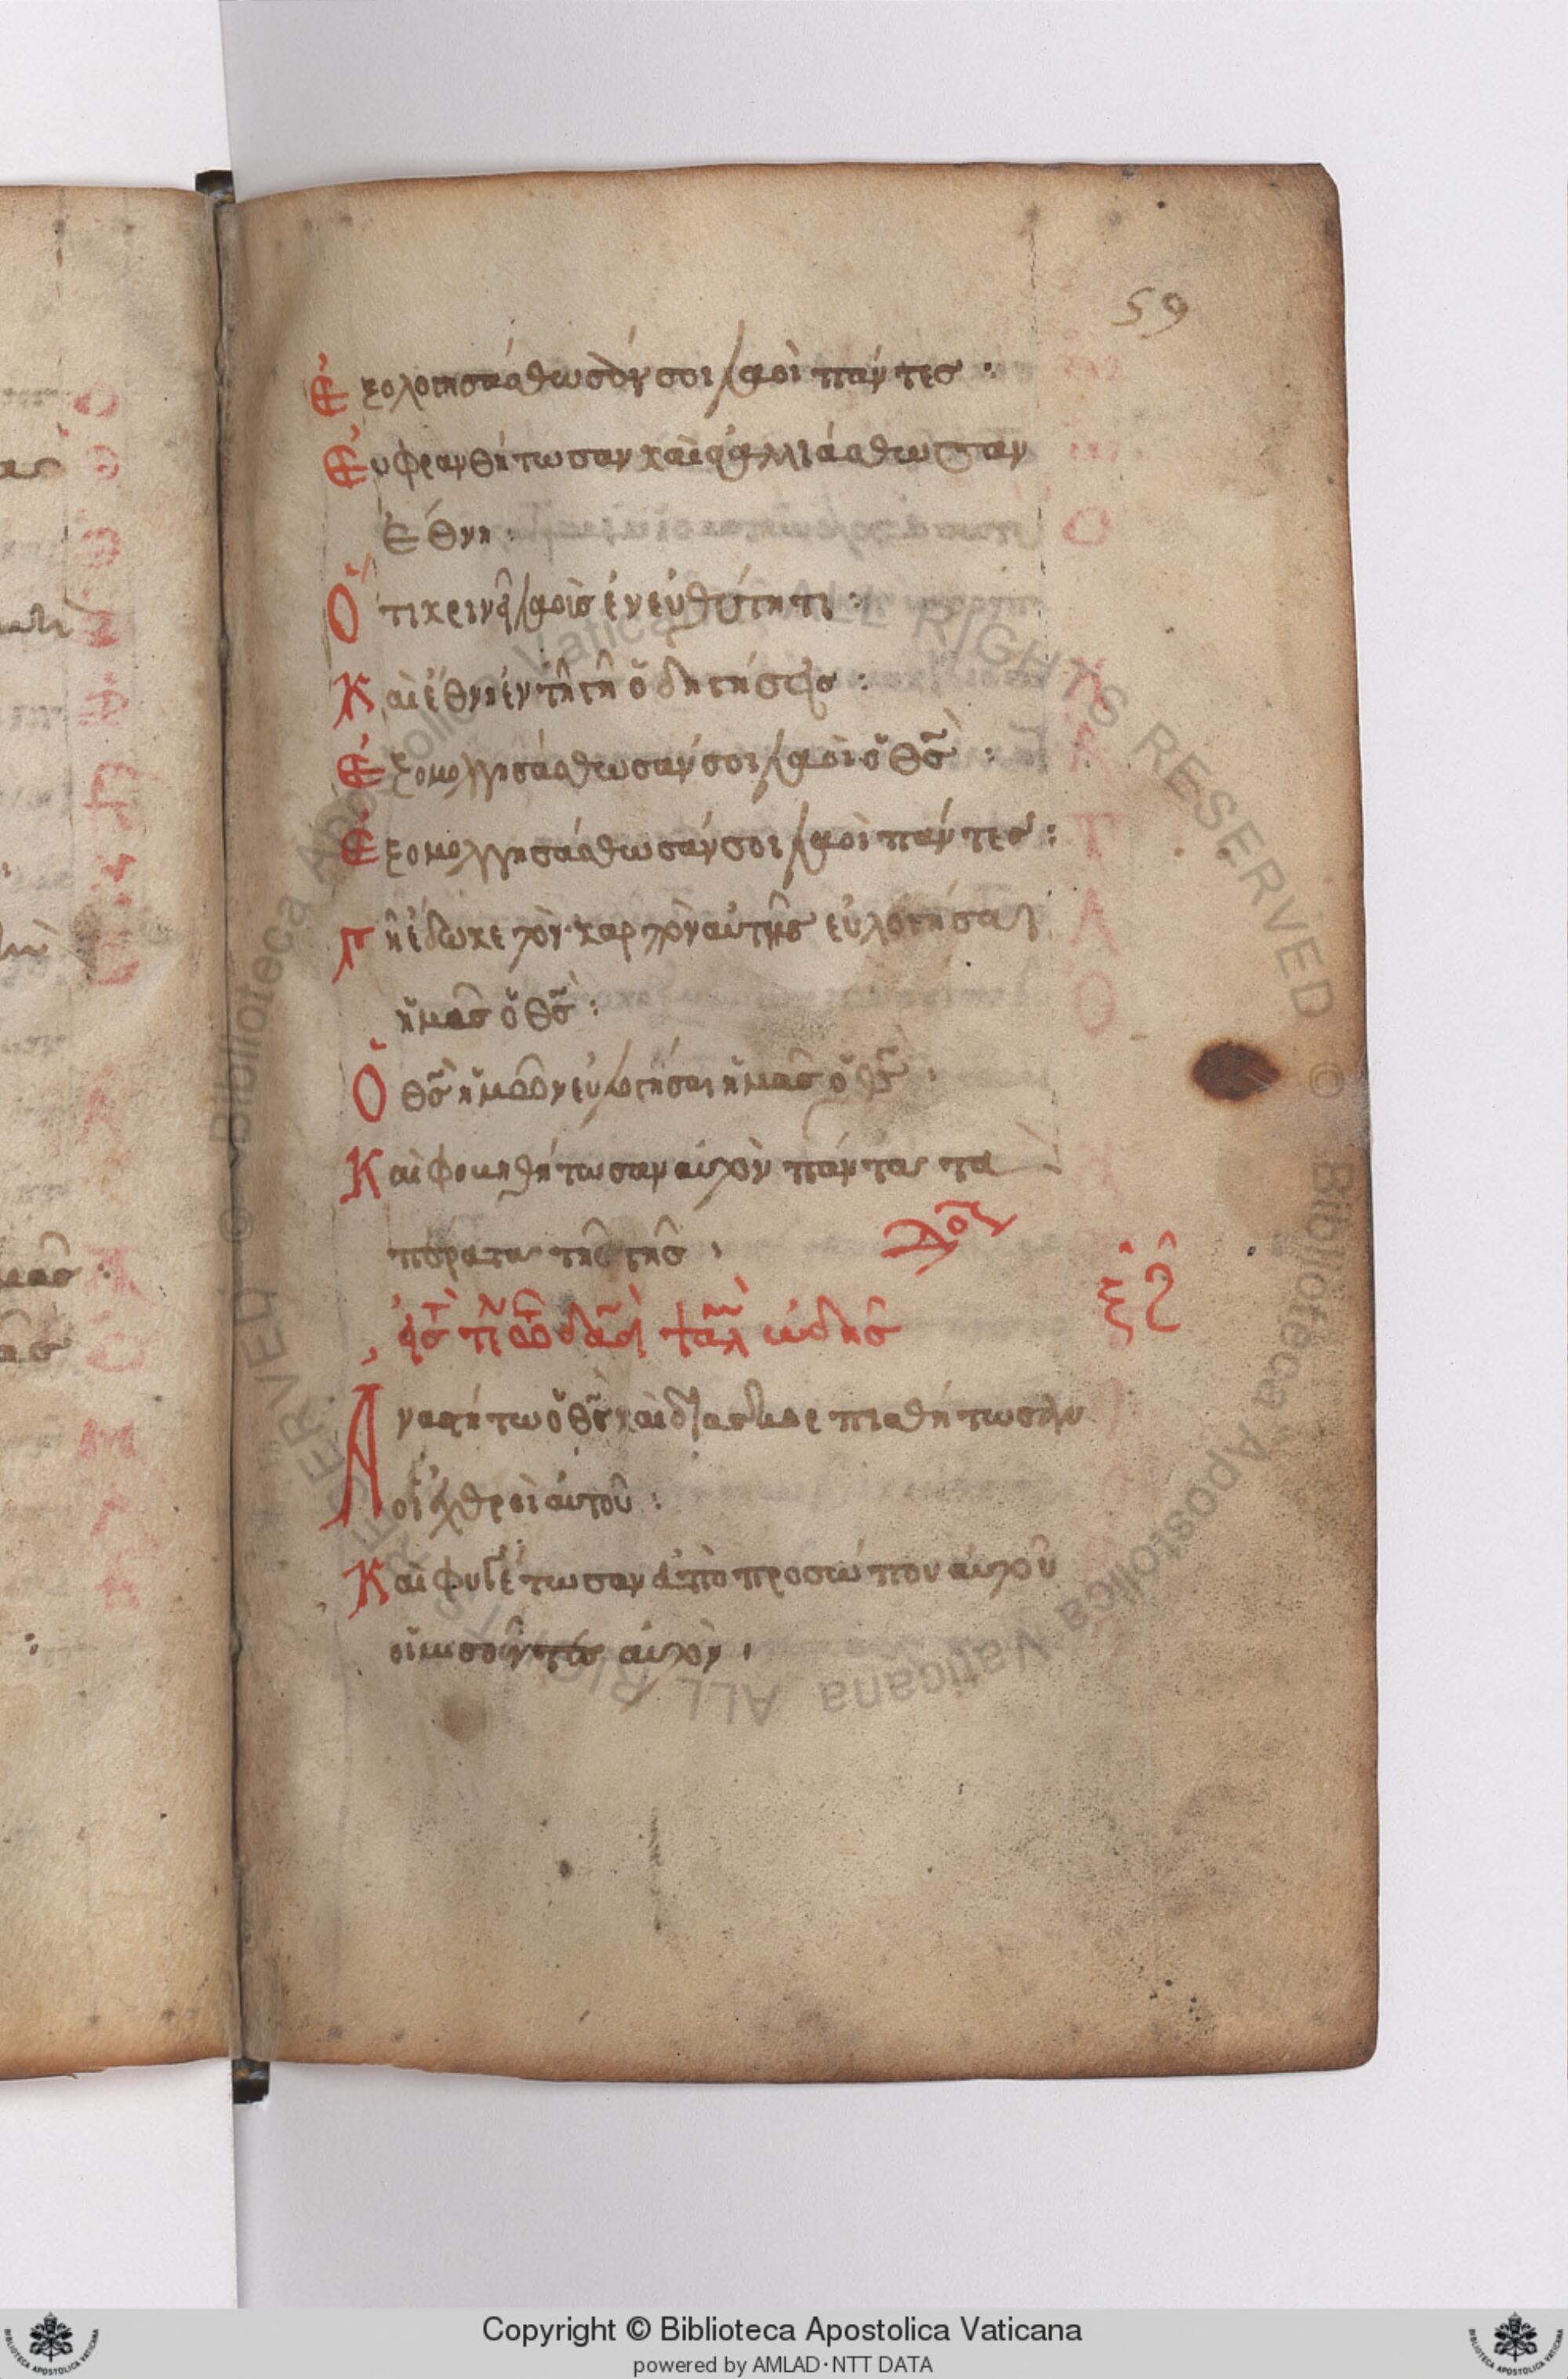 59
Ἐξολογησάσθωσάν σοι λαοὶ πάντες :
Εὐφρανθήτωσαν καὶ ἀγαλλιάσθωσαν
ἔθνη :
Ὅτι κρινεῖ λαοὺς ἐν εὐθύτητι :
Καὶ ἔθνη ἐν τῆ γῆ ὁδηγήσεις :
Ἐξομολογησάσθωσάν σοι λαοὶ ὁ θς̄ :
Ἐξομολογησάσθωσάν σοι λαοὶ πάντες :
Γῆ ἔδωκε τὸν καρπὸν αὐτῆς εὐλογήσαι
ἡμᾶς ὁ θς̄ :
Ὁ θς̄ ἡμῶν εὐλογήσαι ἡμᾶς ὁ θς̄ :
Καὶ φοβηθήτωσαν αὐτὸν πάντα τα
πέρατα τῆς γῆς :
ψαλ ὠδῆς
ξζ
Ἀναστήτω ὁ θς̄ καὶ διασκορπισθήτωσαν
οἱ ἐχθροὶ αὐτοῦ :
Καὶ φυγέτωσαν ἀπὸ προσώπου αὐτοῦ
οἱ μισοῦντες αὐτὸν :
Copyright © Biblioteca Apostolica Vaticana
powered by AMLAD·NTT DATA
© Biblioteca Apostolica Vaticana ALL RIGHTS RESERVED